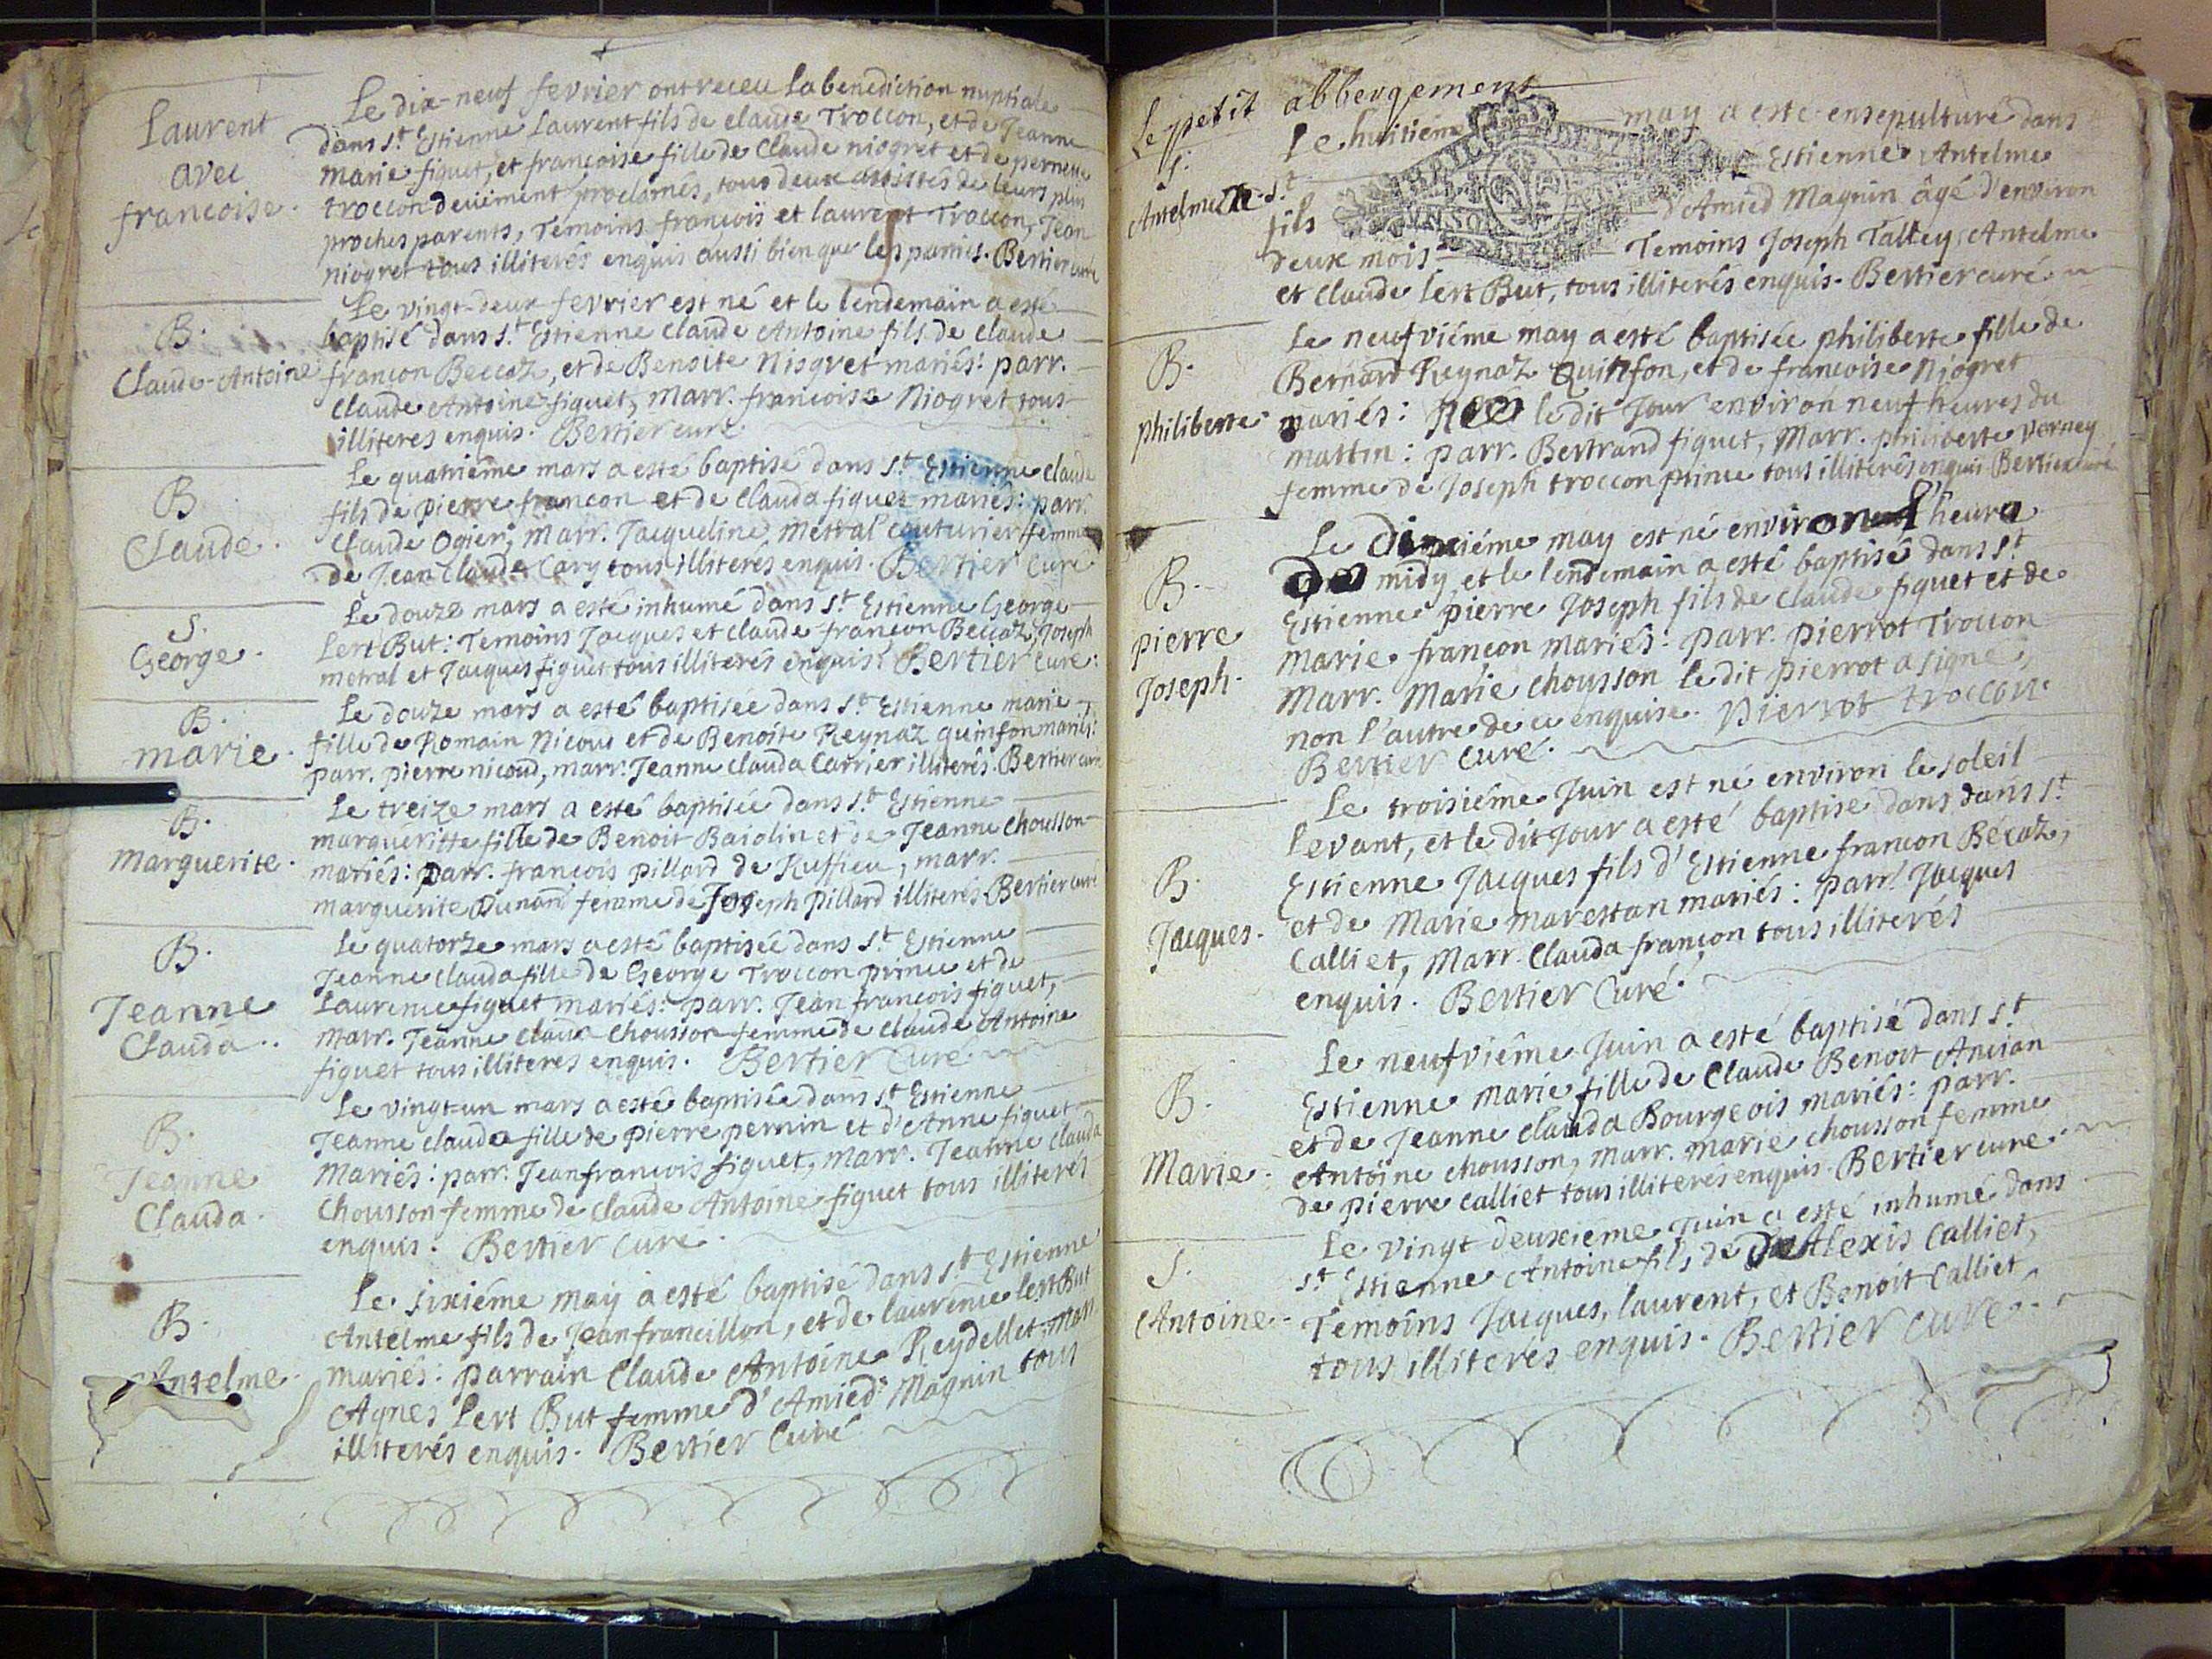 Laurent
avec
francoise.
Le dix-neuf fevrier ont receu la benediction nuptiale
dans St. Estienne Laurent fils de claude Troccon, et de Jeanne
marie figuet, et francoise fille de Claude niogret et de pernette
troccon deüement proclamés, tous deux assistés de leurs plus
proches parents, Temoins francois et laurent Troccon, Jean
niogret tous illiterés enquis aussi bien que les parties. Bertier curé
B.
Claude-Antoine
Le vingt-deux fevrier est né et le lendemain a esté
baptisé dans St. Estienne Claude Antoine fils de Claude
françon Beccaz, et de Benoite Niogret mariés: parr.
Claude Antoine figuet, Marr. francoise Niogret tous
illiteres enquis. Bertier curé.
B
Claude.
Le quatriéme mars a esté baptisé dans St. Estienne claude
fils de pierre françon et de Clauda figuet mariés: parr.
Claude Ogier, Marr. Jacqueline metral couturier femme
de Jean Claude Cary tous illiterés enquis. Bertier Curé
S.
George.
Le douze mars a esté inhumé dans St. Estienne George
Lert But: Temoins Jacques et claude françon Beccaz, Joseph
metral et Jacques figuet tous illiterés enquis: Bertier Curé:
B.
marie.
Le douze mars a esté baptisée dans St. Estienne marie
fille de Romain Nicoud et de Benoite Reynaz quinson mariés:
parr. pierre nicoud, marr. Jeanne Clauda Carrier illiterés. Bertier curé
B.
Marguerite.
Le treize mars a esté baptisée dans St. Estienne
margueritte fille de Benoit Baiolin et de Jeanne Chousson
mariés: parr. francois pillard de Ruffieu, marr.
marguerite Dunand femme de Joseph pillard illiterés Bertier curé
B.
Jeanne
Clauda..
Le quatorze mars a esté baptisée dans St. Estienne
Jeanne clauda fille de George Troccon prince et de
Laurence figuet mariés: parr. Jean francois figuet,
marr. Jeanne Clauda Chousson femme de claude Antoine
figuet tous illiteres enquis. Bertier Curé.
B.
Jeanne
Clauda.
Le vingt-un mars a esté baptisée dans St Estienne
Jeanne claudа fille de pierre pernin et d'Anne figuet
Mariés: parr. Jean francois figuet, Marr. Jeanne Clauda
Chousson femme de claude Antoine figuet tous illiterés
enquis. Bertier Curé.
B.
Antelme.
Le sixiéme may a esté baptisé dans St. Estienne
Antelme fils de Jean francillon, et de laurence lert But
mariés: parrain Claude Antoine Reydellet, Marr
Agnes Lert But femme d'Amied Magnin tous
illiterés enquis. Bertier Curé
Le petit abbergement
S.
Antelme
Le huitiéme may a esté ensepulturé dans
St. Estienne Antelme
fils d'Amied Magnin âgé d'environ
deux mois Temoins Joseph Talley, Antelme
et Claude Lert But, tous illiterés enquis. Bertier curé.
B.
philiberte
Le neufviéme may a esté baptisée philiberte fille de
Bernard Reynaz Quinson, et de francoise Niogret
mariés: Née le dit Jour environ neuf heures du
mattin: parr. Bertrand figuet, Marr. philiberte Verney
femme de Joseph troccon prince tous illiterés enquis Bertier curé
B.
pierre
Joseph.
Le dixiéme may est né environ l'heure
de midy, et le lendemain a esté baptisé dans St
Estienne pierre Joseph fils de Claude figuet et de
Marie françon Mariés: parr. pierrot Troccon
Marr. Marie chousson le dit pierrot a signé,
non l'autre de ce enquise. Pierrot troccon
Bertier Curé.
B.
Jacques.
Le troisiéme Juin est né environ le soleil
levant, et le dit Jour a esté baptisé dans dans St
Estienne Jacques fils d'Estienne françon Bécaz,
et de Marie marestan mariés: parr. Jacques
Calliet, Marr. Clauda françon tous illiterés
enquis. Bertier Curé.
B.
Marie.
Le neufviéme Juin a esté baptisé dans St
Estienne Marie fille de Claude Benoit Ancian
et de Jeanne clauda Bourgeois mariés: parr.
Antoine chousson, marr. marie chousson femme
de pierre Calliet tous illiterés enquis. Bertier curé.
S.
Antoine.
Le vingt deuxiéme Juin a esté inhumé dans
St Estienne Antoine fils de Alexis Calliet,
Temoins Jacques, laurent, et Benoit Calliet
tous illiterés enquis. Bertier curé.